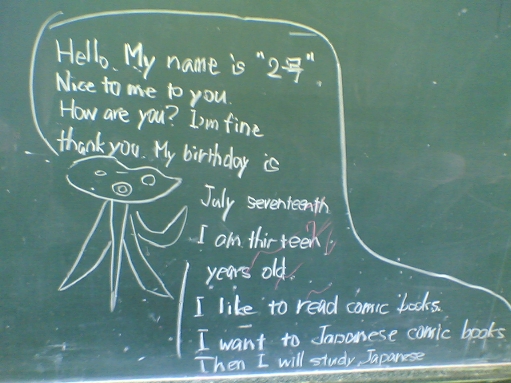 Hello. My name is "2号".
Nice to me to you.
How are you? I'm fine
thank you. My birthday is
July seventeenth
I am thirteen
years old.
I like to read comic books.
I want to Japanese comic books
Then I will study Japanese